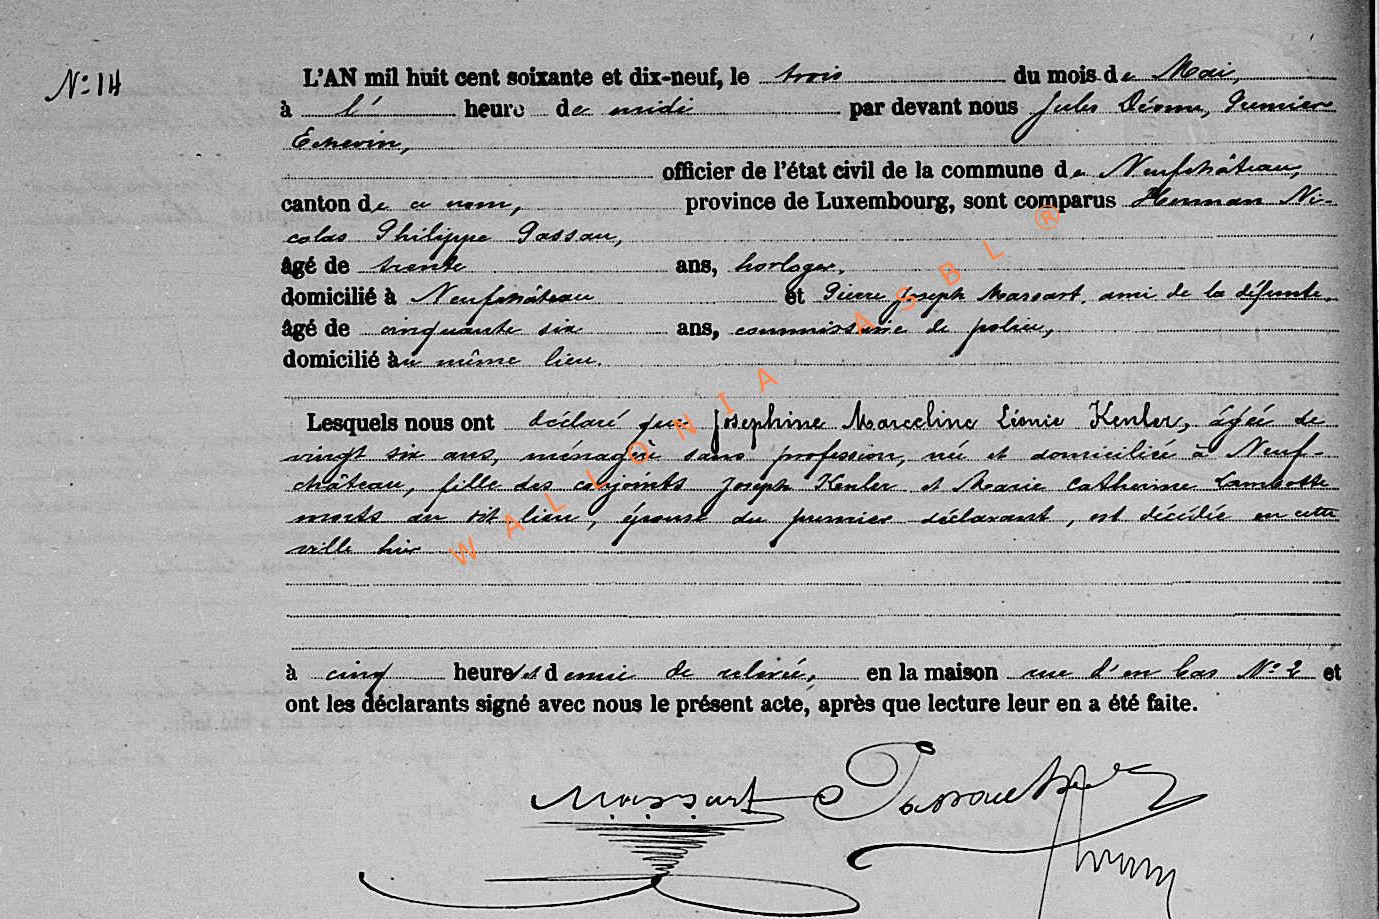 N° 14
L'AN mil huit cent soixante et dix-neuf, le trois du mois de Mai,
à l' heure de midi par devant nous Jules Premier
Echevin,
officier de l'état civil de la commune de Neufchâteau,
canton de ce nom, province de Luxembourg, sont comparus Herman Ni-
colas Philippe Passau,
âgé de trente ans, horloger,
domicilié à Neufchâteau et Pierre Joseph Massart, ami de la défunte,
âgé de cinquante six ans, commissaire de police,
domicilié au même lieu.
Lesquels nous ont déclaré que Josephine Marceline Léonie Kenler, âgée de
vingt six ans, ménagère sans profession, née et domiciliée à Neuf-
château, fille des conjoints Joseph Kenler et Marie Catherine Lambotte
morts au dit lieu, épouse du premier déclarant, est décédée en cette
ville hier
à cinq heures et demie de relevée, en la maison rue d'en bas N° 2 et
ont les déclarants signé avec nous le présent acte, après que lecture leur en a été faite.
Massart Passau
WALLONIA ASBL ®